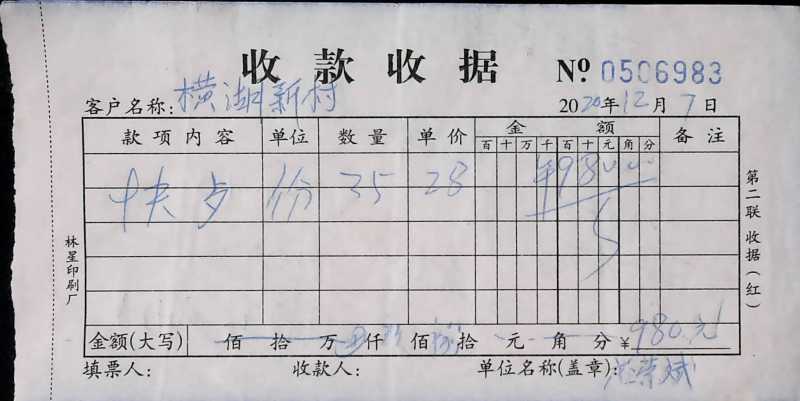 收款收据 Nº 0506983
客户名称:横湖新村 2020年12月7日
款项内容 单位 数量 单价 金额 备注
百十万千百十元角分
快点 份 35 28 ¥98000
金额(大写) 佰拾万仟佰拾元角分 ¥980元
填票人: 收款人: 单位名称(盖章):
第二联收据(红)
林星印刷厂